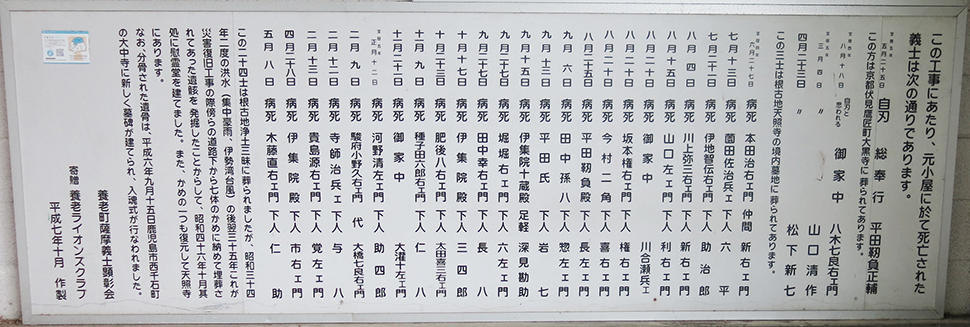 この工事にあたり、元小屋に於て死亡された
義士は次の通りであります。
宝暦五年
五月二十五日 自刃 総奉行 平田靱負正輔
この方は京都伏見鷹匠町大黒寺に葬られてあります。
宝暦四年
八月十八日 自刃と思われる 御家中 八木七良右ヱ門
三月四日 〃 山口清作
四月二十三日 〃 松下新七
この三士は根古地天照寺の境内墓地に葬られてあります。
宝暦四年
六月二十七日 病死 本田治右ヱ門 仲間 新右ヱ門
七月二十一日 病死 薗田佐治兵ヱ 下人 六平
七月二十三日 病死 伊地智伝右ヱ門 下人 助治郎
八月四日 病死 川上弥三右ヱ門 下人 新右ヱ門
八月十五日 病死 山口左ヱ門 下人 利右ヱ門
八月二十日 病死 御家中 川合瀬兵ヱ
八月二十日 病死 坂本権右ヱ門 下人 権右ヱ門
八月二十四日 病死 今村二角 下人 喜右ヱ門
八月二十五日 病死 平田靱負殿 下人 長左ヱ門
九月六日 病死 田中孫八 下人 惣左ヱ門
九月十三日 病死 平田氏 下人 岩七
九月十五日 病死 伊集院十蔵殿 足軽 深見勘助
九月二十七日 病死 堀堀右ヱ門 下人 六左ヱ門
九月二十七日 病死 田中幸右ヱ門 下人 長八
十月十七日 病死 伊集院殿 下人 三四郎
十月二十三日 病死 肥後八右ヱ門 下人 太田喜三右ヱ門
十二月二日 病死 種子田六郎右ヱ門 下人 仁八
十二月二十一日 病死 御家中 大濯十左ヱ門
宝暦五年
正月十二日 病死 駿府小野久右ヱ門代 大橋七良右ヱ門
二月九日 病死 河野清左ヱ門 下人 助四郎
二月十一日 病死 寺師治兵ヱ 下人 与八
二月十三日 病死 貴島源右ヱ門 下人 覚左ヱ門
四月二十八日 病死 伊集院殿 下人 市右ヱ門
五月八日 病死 木藤直右ヱ門 下人 仁助
この二十四士は根古地浄土三昧に葬られましたが、昭和三十四
年二度の洪水(集中豪雨、伊勢湾台風)の後翌三十五年これが
災害復旧工事の際傍らの道路下から七体のかめに納めて埋葬さ
れてあった遺骸を発掘したことからして、昭和四十六年十月其
処に慰霊堂を建てました。また、かめの一つも復元して天照寺
にあります。
なお、分骨された遺骨は、平成六年九月十五日鹿児島市西千石町
の大中寺に新しく墓碑が建てられ、入魂式が行なわれました。
養老町薩摩義士顕彰会
寄贈 養老ライオンズクラブ
平成七年十月 作製